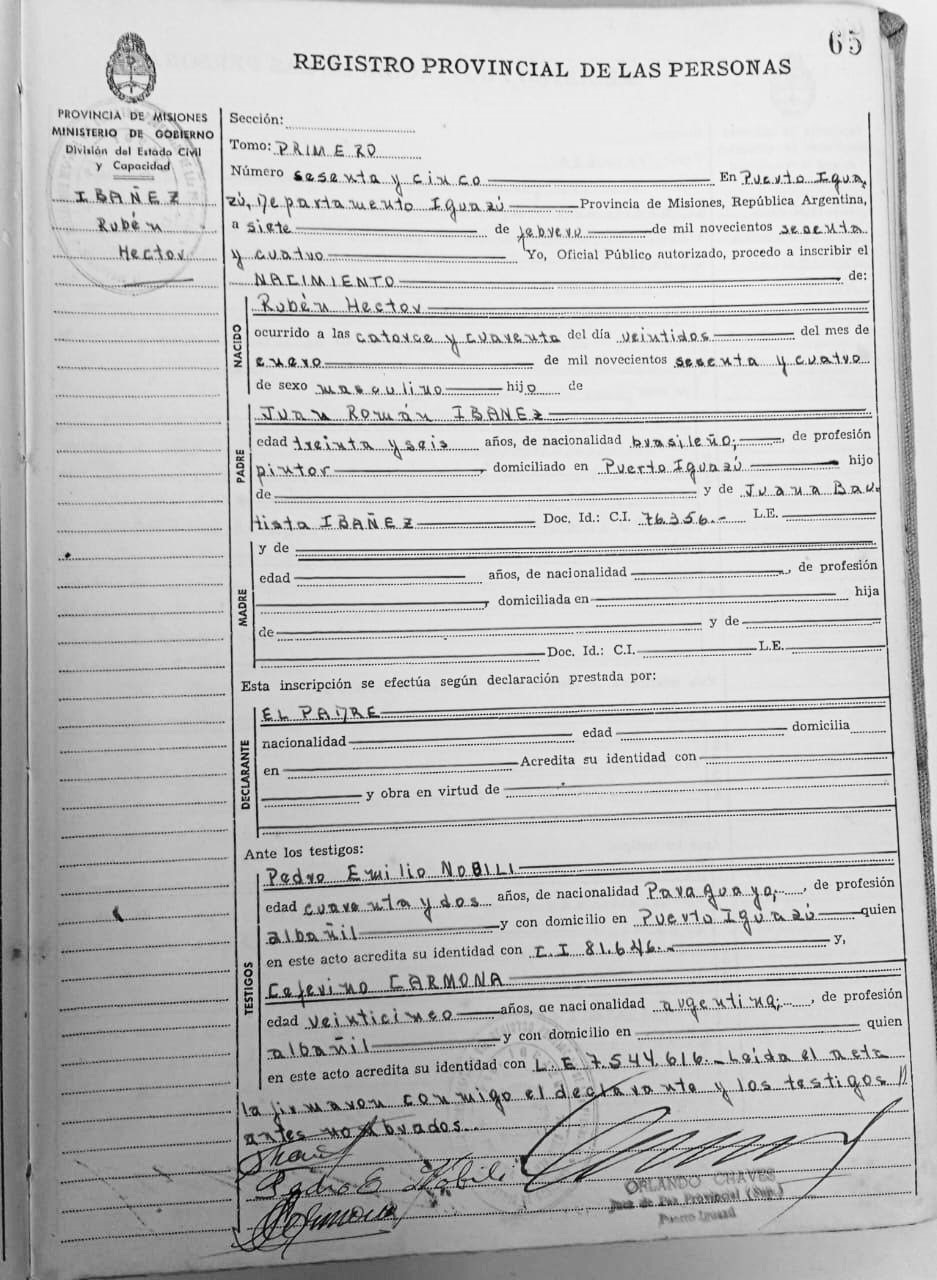 65
REGISTRO PROVINCIAL DE LAS PERSONAS
PROVINCIA DE MISIONES
MINISTERIO DE GOBIERNO
División del Estado Civil
y Capacidad
IBAÑEZ
Rubén
Hector
Sección:
Tomo: PRIMERO
Número sesenta y cinco En Puerto Igua
zú, Departamento Iguazú Provincia de Misiones, República Argentina,
a siete de febrero de mil novecientos sesenta
y cuatro Yo, Oficial Público autorizado, procedo a inscribir el
NACIMIENTO de:
NACIDO
Rubén Hector
ocurrido a las catorce y cuarenta del día veintidos del mes de
enero de mil novecientos sesenta y cuatro
de sexo masculino hijo de
PADRE
Juan Román IBAÑEZ
edad treinta y seis años, de nacionalidad brasileño; de profesión
pintor, domiciliado en Puerto Iguazú hijo
de y de Juana Bau
tista IBAÑEZ Doc. Id.: C.I. 76.356.- L.E.
MADRE
y de
edad años, de nacionalidad, de profesión
, domiciliada en hija
de y de
Doc. Id.: C.I. L.E.
Esta inscripción se efectúa según declaración prestada por:
DECLARANTE
EL PADRE
nacionalidad edad domicilia
en Acredita su identidad con
y obra en virtud de
Ante los testigos:
TESTIGOS
Pedro Emilio NOBILI
edad cuarenta y dos años, de nacionalidad Paraguaya, de profesión
albañil y con domicilio en Puerto Iguazú quien
en este acto acredita su identidad con C.I 81.646.- y,
Ceferino CARMONA
edad veinticinco años, de nacionalidad argentina; de profesión
albañil y con domicilio en quien
en este acto acredita su identidad con L.E 7.544.616.- Leída el acta
la firmaron conmigo el declarante y los testigos //
antes nombrados..
Pedro E Nobili
ORLANDO CHAVES
Juez de Paz Provincial (Sup.)
Puerto Iguazú